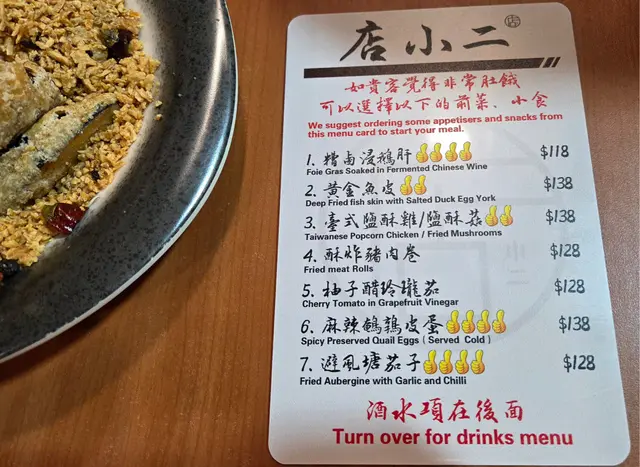 店小二
如貴客覺得非常肚餓
可以選擇以下的前菜、小食
We suggest ordering some appetisers and snacks from
this menu card to start your meal.
1. 糟卤浸鵝肝 $118
Foie Gras Soaked in Fermented Chinese Wine
2. 黄金魚皮 $138
Deep Fried fish skin with Salted Duck Egg York
3. 臺式鹽酥雞/鹽酥菇 $138
Taiwanese Popcorn Chicken / Fried Mushrooms
4. 酥炸豬肉卷 $128
Fried meat Rolls
5. 柚子醋玲瓏茄 $128
Cherry Tomato in Grapefruit Vinegar
6. 麻辣鵪鶉皮蛋 $138
Spicy Preserved Quail Eggs ( Served Cold )
7. 避風塘茄子 $128
Fried Aubergine with Garlic and Chilli
酒水項在後面
Turn over for drinks menu